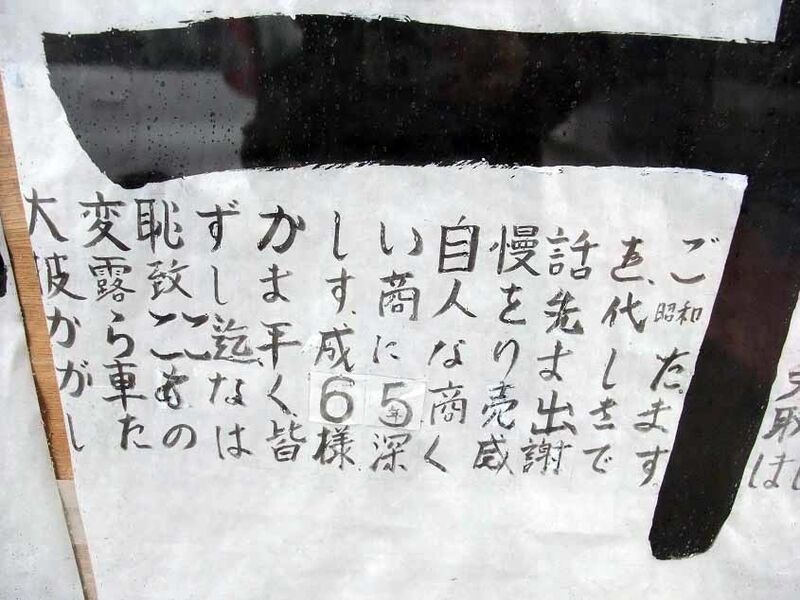 大変恥ずかしい自慢話を、ご
披露致します、商人を先代昭和
からここ迄、平成になりました、
が車もなく、65年商売出きます
したのは皆様深く感謝です